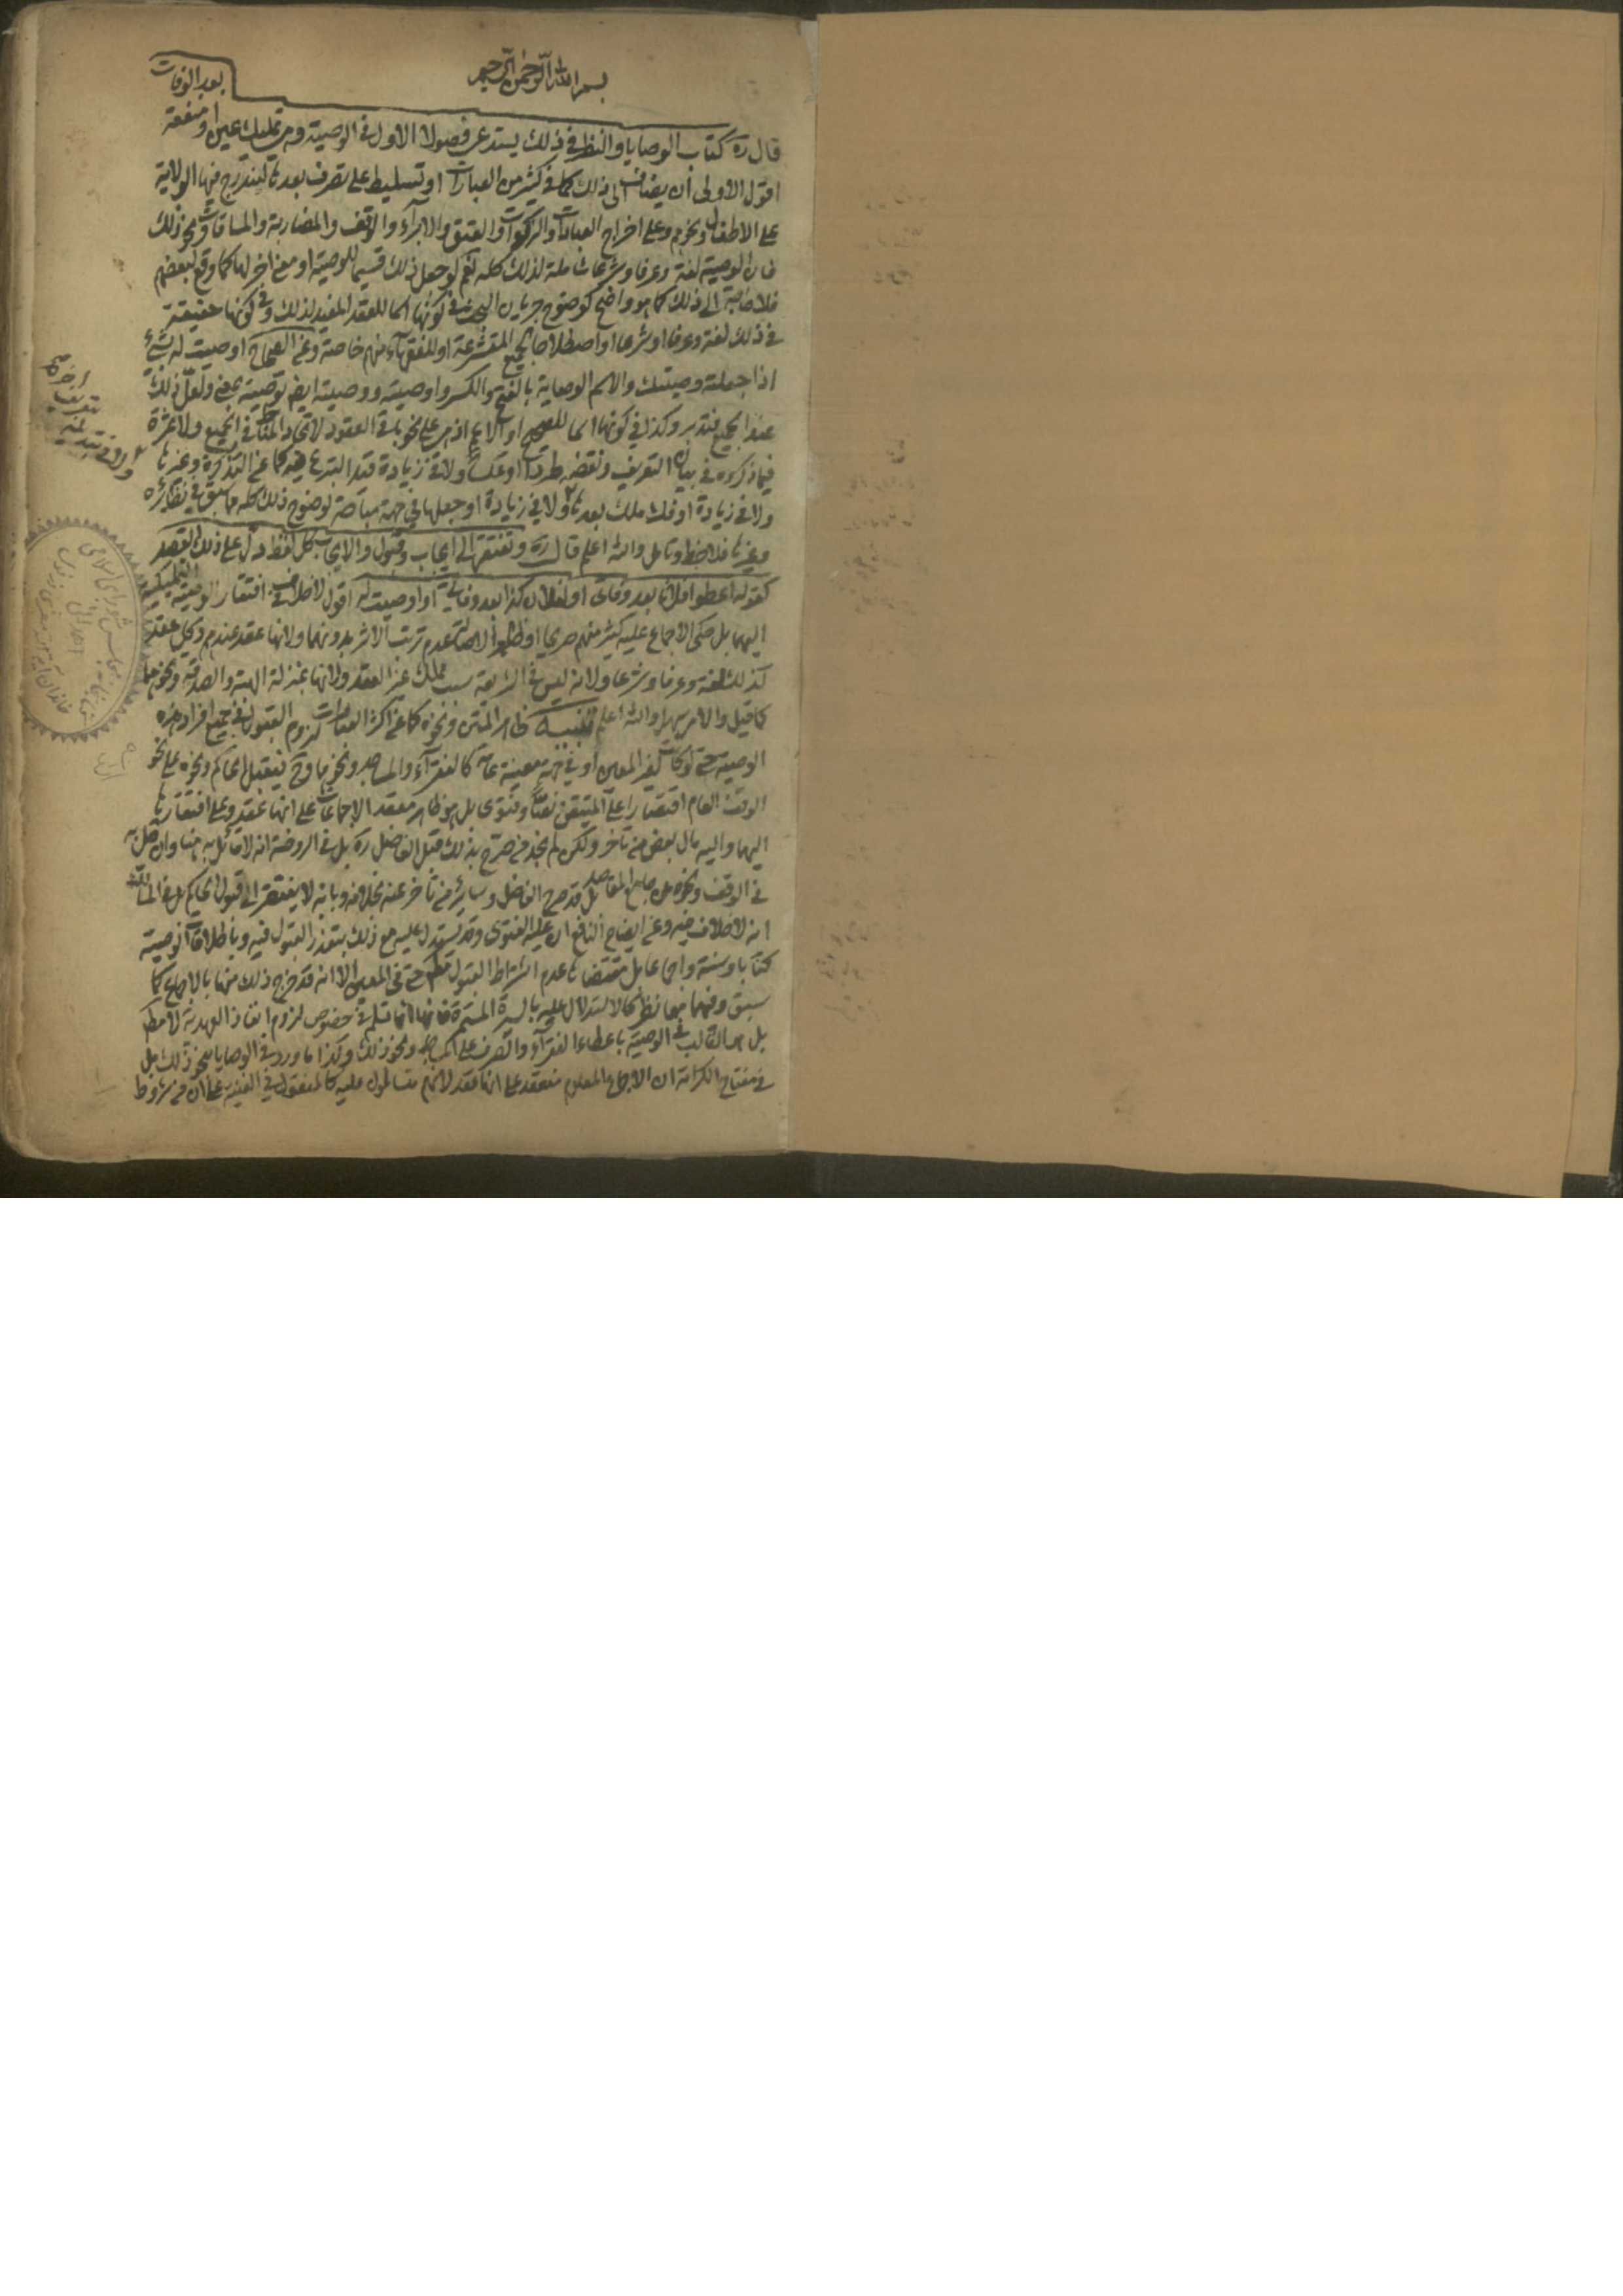 بسم الله الرحمن الرحيم
قال ره كتاب الوصايا والنظر في ذلك يستدعى فصولا الاول في الوصية وهى تمليك عين او منفعة بعد الوفات
اقول الاولى ان يضاف الى ذلك كما في كثير من العبارات او تسليط على تصرف بعدها ليندرج فيها الولاية
على الاطفال ونحوهم وعلى اخراج العبادات والزكوات والعتق والابرآء والوقف والمضاربة والمساقاة ونحو ذلك
فان الوصية لغة وعرفا وشرعا شاملة لذلك كله نعم لو جعل ذلك قسيما للوصية او معنى اخر لها كما وقع لبعضهم
فلا حاجة الى ذلك كما هو واضح كوضوح جريان البحث في كونها اسما للعقد المفيد لذلك وفي كونها حقيقة
في ذلك لغة وعرفا او شرعا او اصطلاحا لجميع المتشرعة او للفقهآء منهم خاصة وعن الصحاح اوصيت له بشئ
اذا جعلته وصيتك والاسم الوصاية بالفتح والكسر واوصيته ووصيته ايض توصية بمعنى ولعل ذلك
عند الجميع فتدبر وكذا في كونها اسما للصحيح او الاعم اذ هى على نحو باقى العقود لاتحاد المناط في الجميع ولا ثمرة
فيما ذكروه في بيان التعريف ونقضه طردا او عكسا ولا في زيادة قيد التبرع فيه كما عن التذكرة وغيرها
ولا في زيادة او فك ملك بعدها ولا في زيادة او جعلها في جهة مباحة لوضوح ذلك كله مما سبق في نظائره
وغيرها فلاحظ وتامل والله اعلم قال ره وتفتقر الى ايجاب وقبول والايجاب كل لفظ دل على ذلك القصد
كقوله اعطوا فلانا بعد وفاتى او لفلان كذا بعد وفاتي او اوصيت له اقول لا خلاف في افتقار الوصية التمليكية
اليهما بل حكى الاجماع عليه كثير منهم صريحا او ظاهرا لاصالة عدم ترتب الاثر بدونهما ولانها عقد عندهم وكل عقد
كذلك لغة وعرفا وشرعا ولانه ليس في الشريعة سبب مملك غير العقد ولانها بمنزلة الهبة والصدقة ونحوهما
كما قيل والامر سهل والله اعلم تنبيه ظاهر المتن ونحوه كما عن اكثر العبارات لزوم القبول في جميع افراد هذه
الوصية حتى لو كانت لغير المعين او في جهة معينة عامة كالفقرآء والمساجد ونحوها وح فيقبل الحاكم ونحوه على نحو
الوقف العام اقتصارا على المتيقن نصا وفتوى بل هو ظاهر معقد الاجماعات على انها عقد وعلى افتقارها
اليهما واليه مال بعض من تاخر ولكن لم نجد من صرح بذلك قبل الفاضل ره بل في الروضة انه لا قائل به هنا وان قيل به
في الوقف ونحوه عن جامع المقاصد بل قد صرح الفاضل وسائر من تأخر عنه بخلافه وبانه لا يفتقر الى قبول الحاكم بل في المسالك
انه لا خلاف فيه وعن ايضاح النافع ان عليه الفتوى وقد يستدل عليه مع ذلك بتعذر القبول فيه وباطلاقات الوصية
كتابا وسنة واجماعا بل مقتضاها عدم اشتراط القبول مط حتى في المعين الا انه قد خرج ذلك منها بالاجماع كما
سبق وفيهما معا نظر كالاستدلال عليه بالسيرة المستمرة فانها انما تسلم في خصوص لزوم انفاذ العهدية لا مط
بل هى الغالب في الوصية باعطاء الفقرآء والصرف على المساجد ونحو ذلك وكذا ما ورد في الوصايا بنحو ذلك بل
في مفتاح الكرامة ان الاجماع المعلوم منعقد على انها عقد لانهم متسالمون عليه كالمنقول في الغنية على ان من شروط